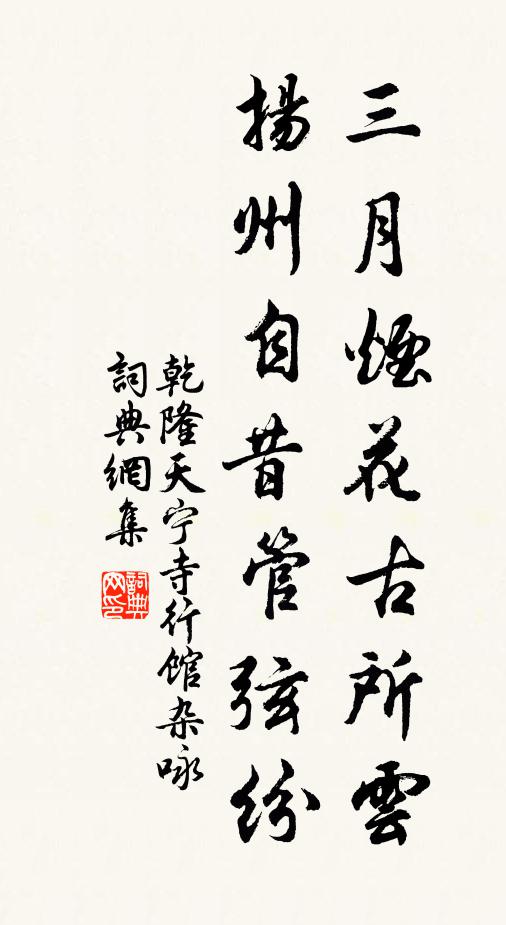 三月煙花古所雲
揚州自昔管弦紛
乾隆天宁寺行馆杂咏
詞典網集
詞典网印